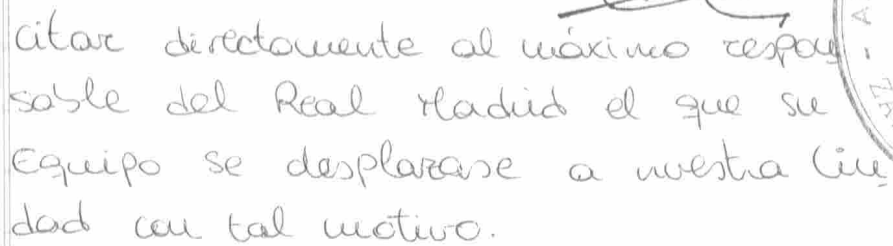 citar directamente al máximo respon
sable del Real Madrid el que su
Equipo se desplazase a nuestra Ciu
dad con tal motivo.